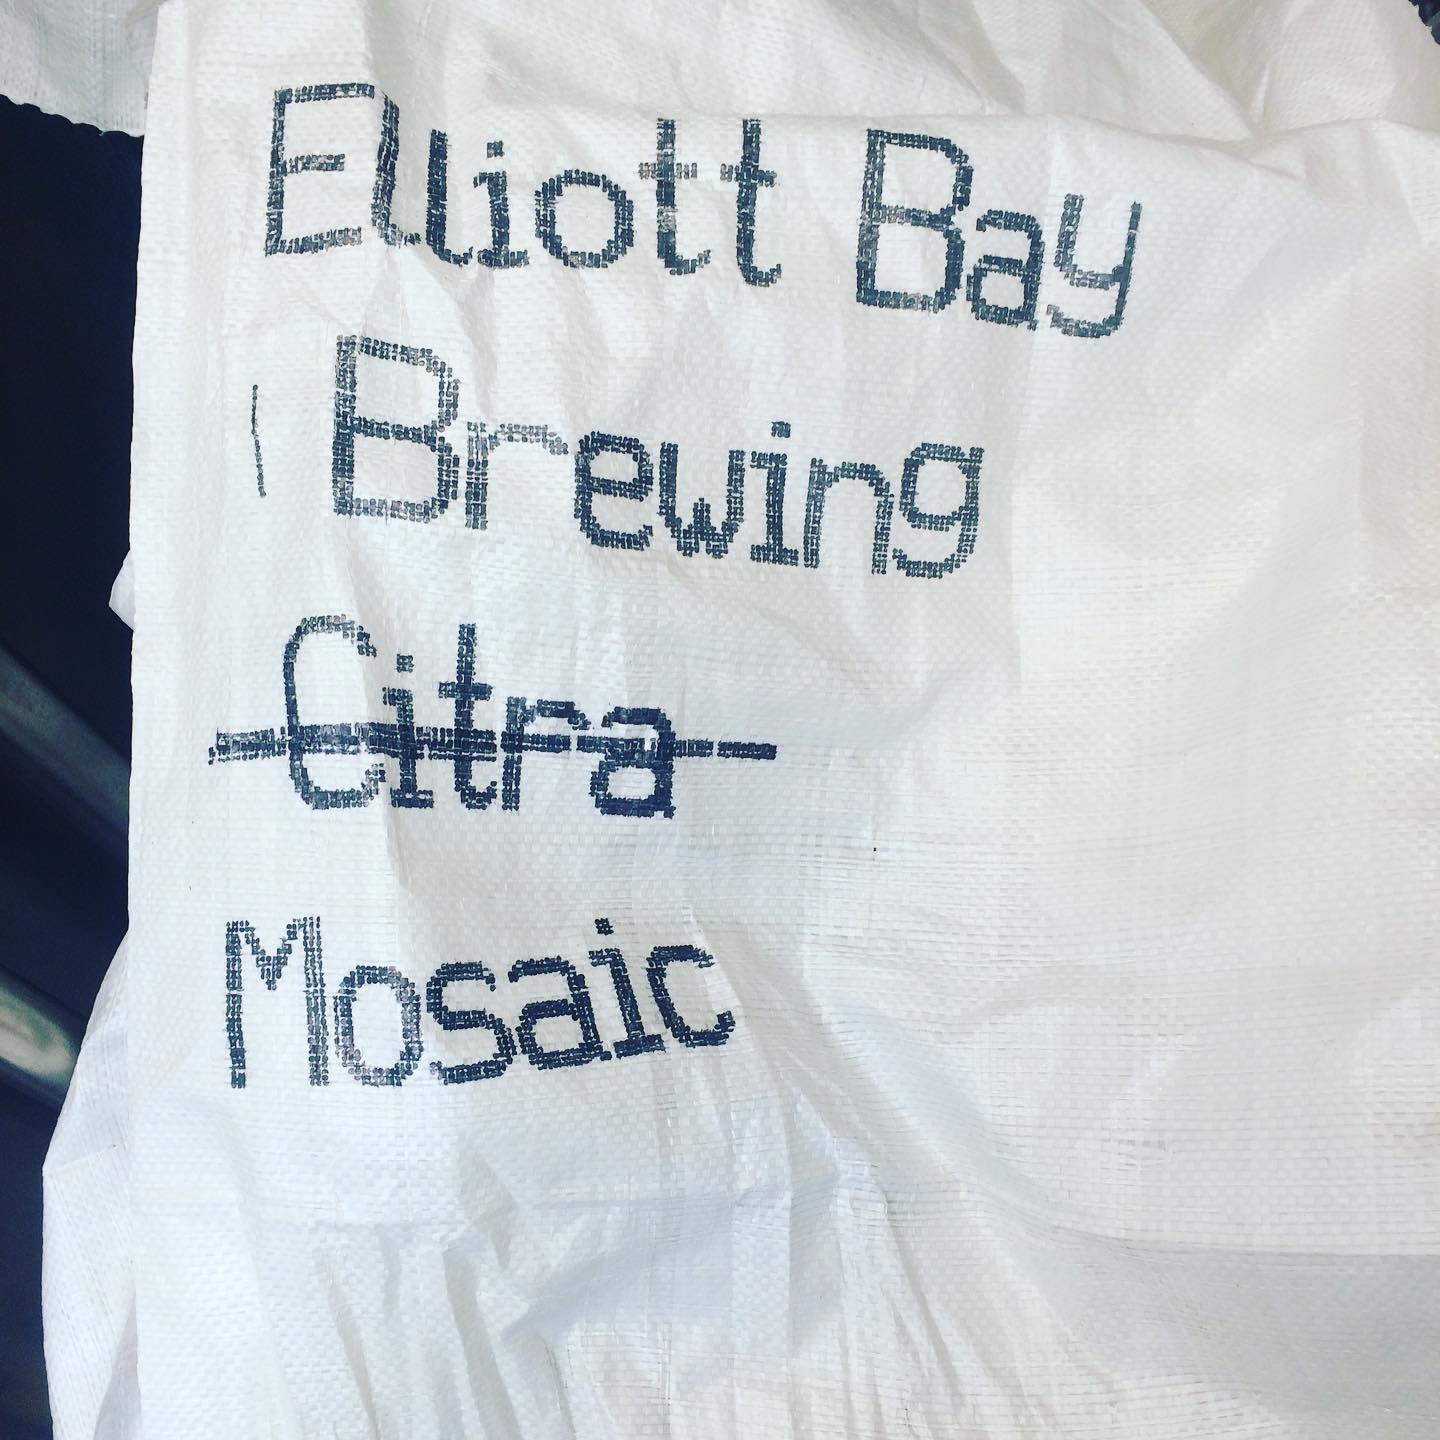 Elliott Bay
Brewing
Citra
Mosaic